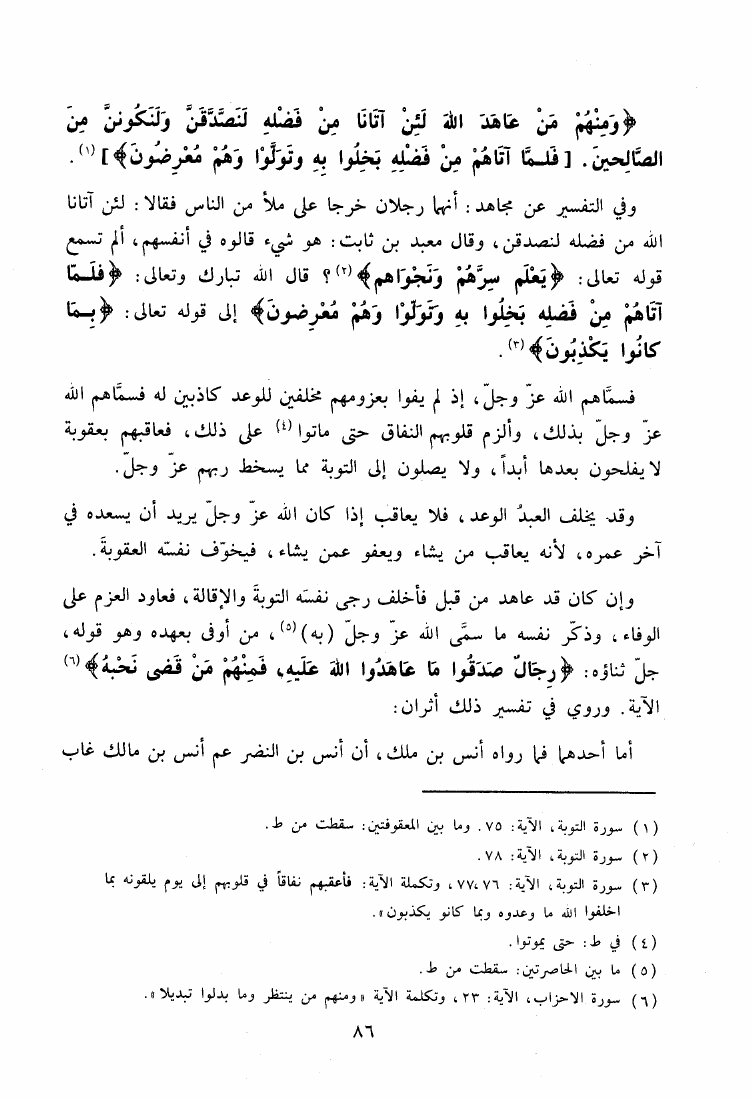 ﴿وَمِنْهُمْ مَنْ عَاهَدَ اللهَ لَئِنْ آتَانَا مِنْ فَضْلِهِ لَنَصَّدَّقَنَّ وَلَنَكُوننَّ مِنَ
الصَّالِحينَ. [فَلـمَّا آتَاهُمْ مِنْ فَضْلِهِ بَخِلُوا بِهِ وتَولَّوْا وَهُمْ مُعْرِضُونَ﴾] (١).
وفي التفسير عن مجاهد: أنهما رجلان خرجا على ملأ من الناس فقالا: لئن آتانا
الله من فضله لنصدقن، وقال معبد بن ثابت: هو شيء قالوه في أنفسهم، ألم تسمع
قوله تعالى: ﴿يَعْلَم سِرَّهُمْ وَنَجْوَاهم﴾(٢)؟ قال الله تبارك وتعالى: ﴿فلَـمَّا
آتَاهُمْ مِنْ فَضلِه بَخِلُوا بهِ وَتَولّوْا وَهُمْ مُعْرِضونَ﴾ إلى قوله تعالى: ﴿بِـمَا
كانُوا يَكْذِبُونَ﴾(٣).
فسمَّاهم الله عزّ وجلّ، إذ لم يفوا بعزومهم مخلفين للوعد كاذبين له فسمَّاهم الله
عزّ وجلّ بذلك، وألزم قلوبهم النفاق حتى ماتوا(٤) على ذلك، فعاقبهم بعقوبة
لا يفلحون بعدها أبداً، ولا يصلون إلى التوبة مما يسخط ربهم عزّ وجلّ.
وقد يخلف العبدُ الوعد، فلا يعاقب إذا كان الله عزّ وجلّ يريد أن يسعده في
آخر عمره، لأنه يعاقب من يشاء ويعفو عمن يشاء، فيخوّف نفسَه العقوبةَ.
وإن كان قد عاهد من قبل فأخلف رجى نفسَه التوبةَ والإقالة، فعاود العزم على
الوفاء، وذكّر نفسه ما سمَّى الله عزّ وجلّ (به)(٥)، من أوفى بعهده وهو قوله،
جلّ ثناؤه: ﴿رِجَالٌ صدَقُوا مَا عَاهَدُوا اللهَ عَلَيهِ، فَمِنْهُمْ مَنْ قَضى نَحْبهُ﴾(٦)
الآية. وروي في تفسير ذلك أثران:
أما أحدهما فما رواه أنس بن ملك، أن أنس بن النضر عم أنس بن مالك غاب
(١) سورة التوبة، الآية: ٧٥. وما بين المعقوفتين: سقطت من ط.
(٢) سورة التوبة، الآية: ٧٨.
(٣) سورة التوبة، الآية: ٧٦،٧٧، وتكملة الآية: فأعقبهم نفاقاً في قلوبهم إلى يوم يلقونه بما
اخلفوا الله ما وعدوه وبما كانو يكذبون».
(٤) في ط: حتى يموتوا.
(٥) ما بين الحاصرتين: سقطت من ط.
(٦) سورة الاحزاب، الآية: ٢٣، وتكلمة الآية «ومنهم من ينتظر وما بدلوا تبديلا».
٨٦